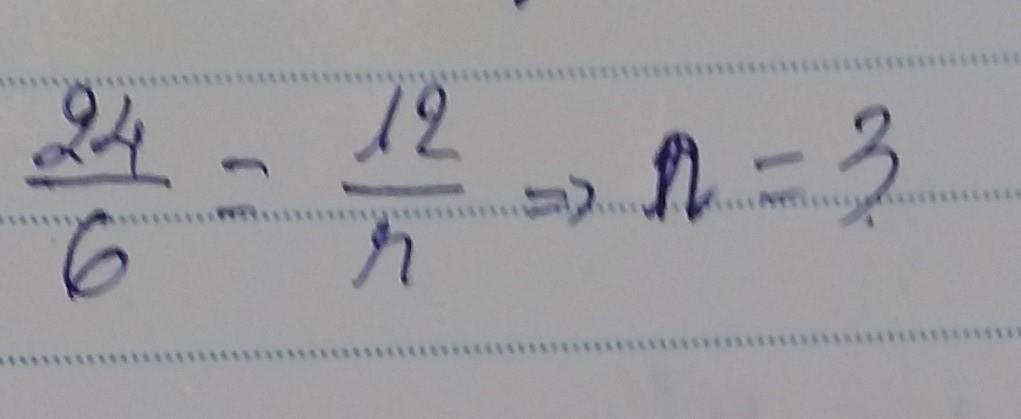 24/6 = 12/n => n = 3